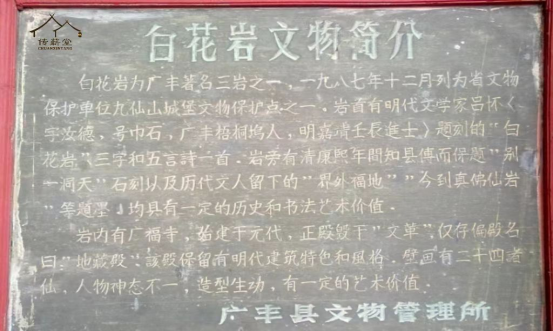 传薪堂
CHUANXINTANG
白花岩文物简介
白花岩为广丰著名三岩之一，一九八七年十二月列为省文物
保护单位九仙山城堡文物保护点之一，岩首有明代文学家吕怀《
字汝德，号巾石，广丰梧桐坞人，明嘉靖壬辰進士》题刻的"白
花岩"三字和五言詩一首．岩旁有清康熙年間知县傅而保题"别
一洞天"石刻以及历代文人留下的"界外福地""今到真佛仙岩
"等题墨，均具有一定的历史和书法艺术价值．
岩内有广福寺，始建于元代，正殿毁于"文革"仅存偏殿名
曰"地該殿"該殿保留有明代建筑特色和風格．壁画有二十四诸
仙，人物神态不一，造型生动，有一定的艺术价值．
广丰县文物管理所